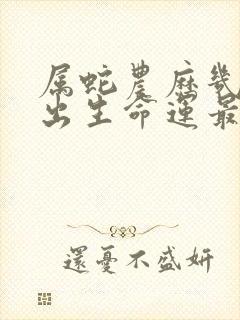 属蛇農历幾
出生命運最
還憂不盛妍